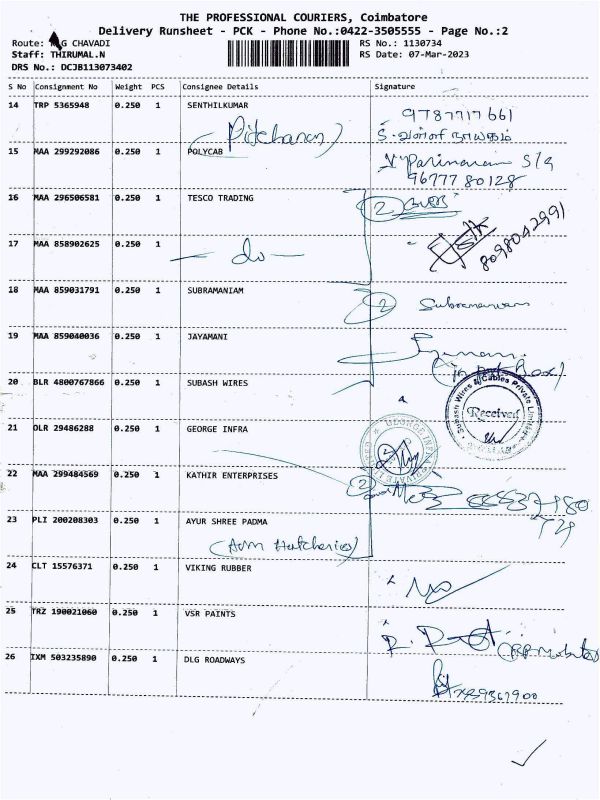 THE PROFESSIONAL COURIERS, Coimbatore
Delivery Runsheet - PCK - Phone No.:0422-3505555 - Page No.:2
Route: G CHAVADI
Staff: THIRUMAL.N
DRS No.: DCJB113073402
RS No.: 1130734
RS Date: 07-Mar-2023
S No Consignment No Weight PCS Consignee Details Signature
14 TRP 5365948 0.250 1 SENTHILKUMAR
9787717661
15 MAA 299292086 0.250 1 POLYCAB
96777 80128
16 MAA 296506581 0.250 1 TESCO TRADING
2
17 MAA 858902625 0.250 1 - do -
8098042991
18 MAA 859031791 0.250 1 SUBRAMANIAM
2
19 MAA 859040036 0.250 1 JAYAMANI
20 BLR 4800767866 0.250 1 SUBASH WIRES
Subash Wires & Cables Private Limited
Received
21 DLR 29486288 0.250 1 GEORGE INFRA
GEORGE INFRA PRIVATE LIMITED
22 MAA 299484569 0.250 1 KATHIR ENTERPRISES
2
23 PLI 200208303 0.250 1 AYUR SHREE PADMA
Hatcheries)
24 CLT 15576371 0.250 1 VIKING RUBBER
25 TRZ 190021060 0.250 1 VSR PAINTS
26 IXM 503235890 0.250 1 DLG ROADWAYS